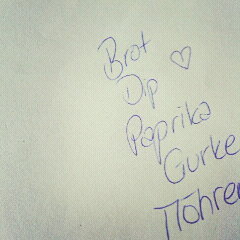 Brot
Dip
Paprika
Gurke
Möhren